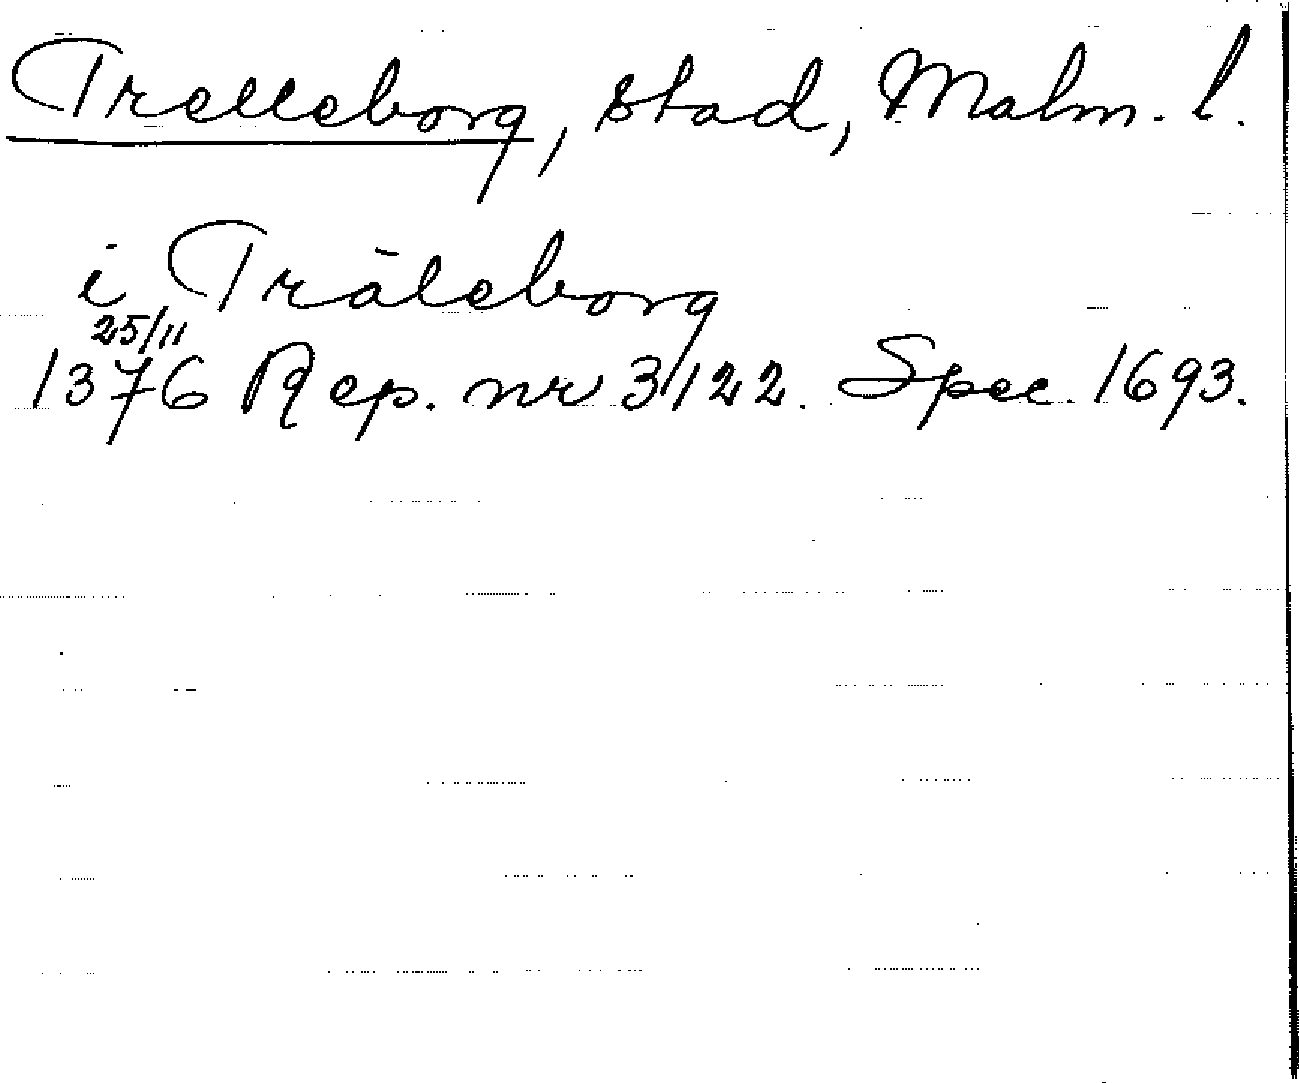 Trelleborg, stad, Malm. l.
i Träleborg
25/11
1376 Rep. nr 3122. Spec. 1693.